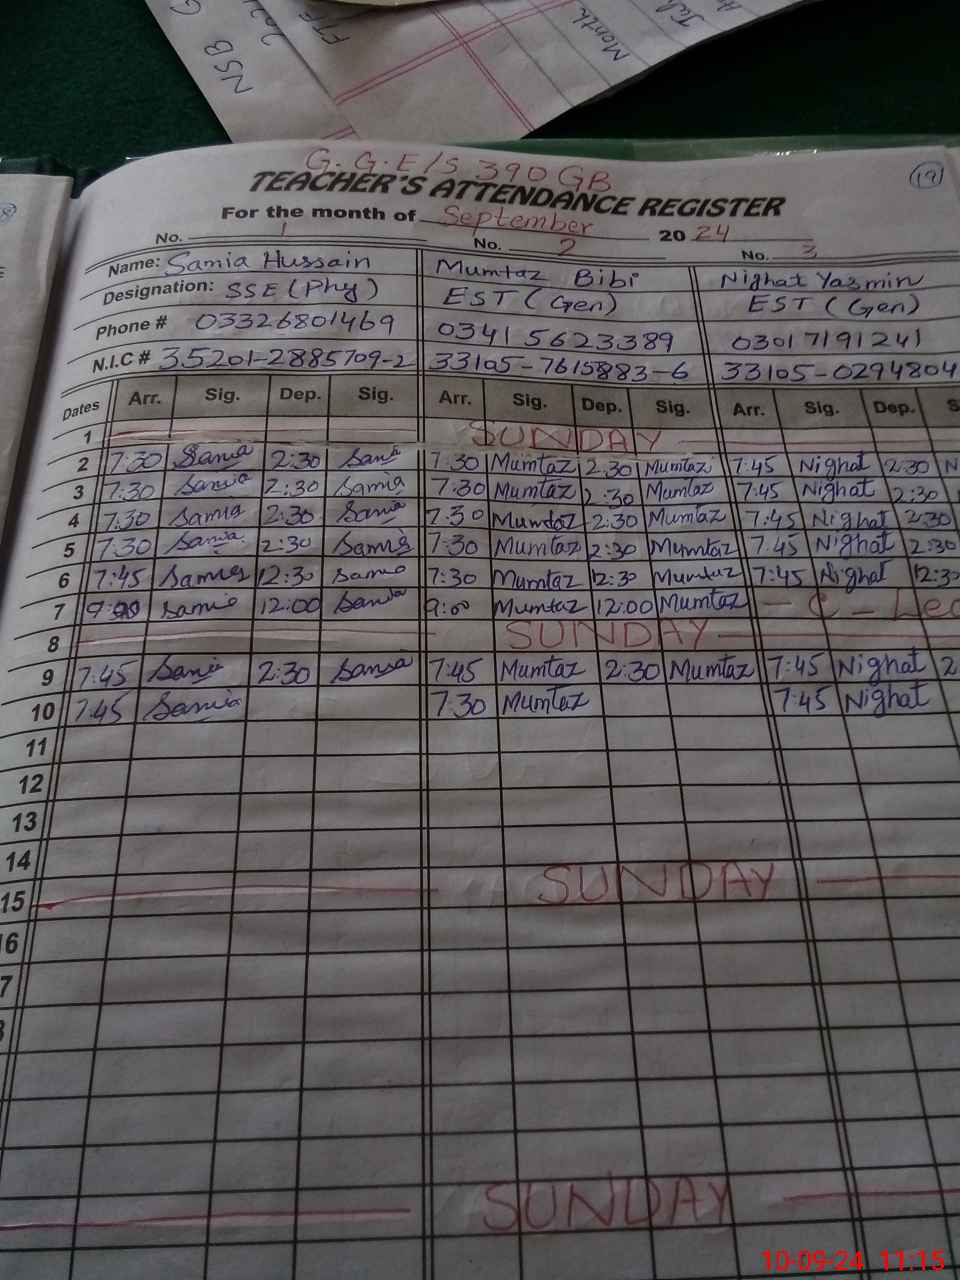 NSB
Month
G.G.E/S 390 GB
19
TEACHER'S ATTENDANCE REGISTER
For the month of September 20 24
No. 1 No. 2 No. 3
Name: Samia Hussain Mumtaz Bibi Nighat Yasmin
Designation: SSE (Phy) EST (Gen) EST (Gen)
Phone # 03326801469 0341 5623389 0301 7191241
N.I.C # 35201-2885709-2 33105-7615883-6 33105-0294804
Dates Arr. Sig. Dep. Sig. Arr. Sig. Dep. Sig. Arr. Sig. Dep. S
1 SUNDAY
2 7:30 Samia 2:30 Samia 7:30 Mumtaz 2:30 Mumtaz 7:45 Nighat 2:30 N
3 7:30 Samia 2:30 Samia 7:30 Mumtaz 2:30 Mumtaz 7:45 Nighat 2:30
4 7:30 Samia 2:30 Samia 7:30 Mumtaz 2:30 Mumtaz 7:45 Nighat 2:30
5 7:30 Samia 2:30 Samia 7:30 Mumtaz 2:30 Mumtaz 7:45 Nighat 2:30
6 7:45 Samia 12:30 Samia 7:30 Mumtaz 12:30 Mumtaz 7:45 Nighat 12:30
7 9:00 Samia 12:00 Samia 9:00 Mumtaz 12:00 Mumtaz - C - Lea
8 SUNDAY
9 7:45 Samia 2:30 Samia 7:45 Mumtaz 2:30 Mumtaz 7:45 Nighat 2
10 7:45 Samia 7:30 Mumtaz 7:45 Nighat
11
12
13
14
15 SUNDAY
16
7
SUNDAY
10-09-24 11:15